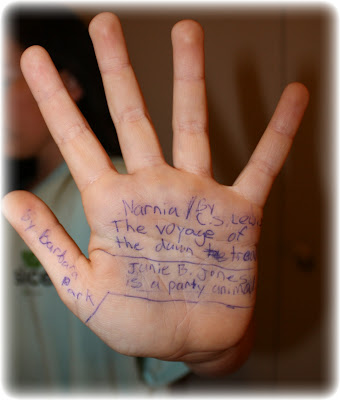 Narnia / By
C.S. Lewis
The voyage of
the dawn tread
Junie B. Jones
is a party animal
By Barbara
Park